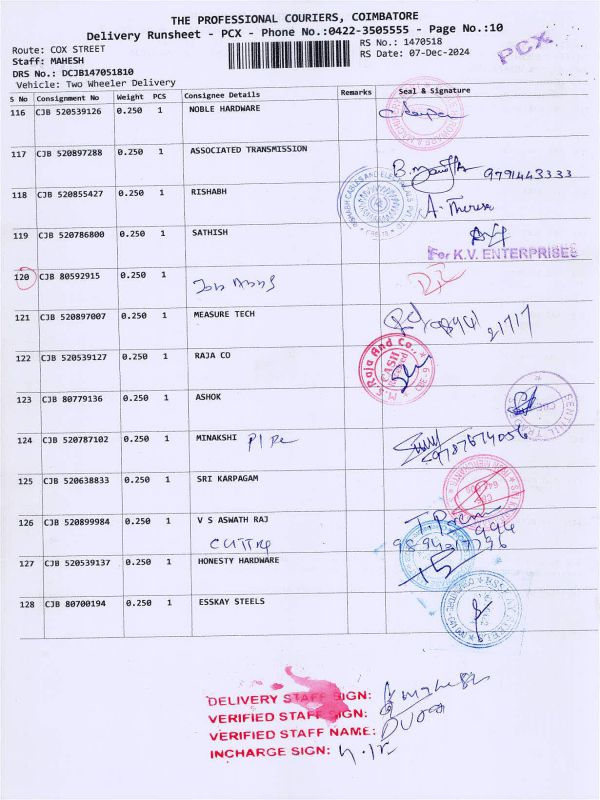 THE PROFESSIONAL COURIERS, COIMBATORE
Delivery Runsheet - PCX - Phone No.:0422-3505555 - Page No.:10
Route: COX STREET
RS No.: 1470518
PCX
Staff: MAHESH
RS Date: 07-Dec-2024
DRS No.: DCJB147051810
Vehicle: Two Wheeler Delivery
S No Consignment No Weight PCS Consignee Details Remarks Seal & Signature
116 CJB 520539126 0.250 1 NOBLE HARDWARE
117 CJB 520897288 0.250 1 ASSOCIATED TRANSMISSION
9791443333
118 CJB 520855427 0.250 1 RISHABH
A. Therese
119 CJB 520786800 0.250 1 SATHISH
For K.V. ENTERPRISES
120 CJB 80592915 0.250 1
121 CJB 520897007 0.250 1 MEASURE TECH
122 CJB 520539127 0.250 1 RAJA CO
M.S. Raja And Co.,
CASH
123 CJB 80779136 0.250 1 ASHOK
124 CJB 520787102 0.250 1 MINAKSHI Pipe
125 CJB 520638833 0.250 1 SRI KARPAGAM
126 CJB 520899984 0.250 1 V S ASWATH RAJ
127 CJB 520539137 0.250 1 HONESTY HARDWARE
128 CJB 80700194 0.250 1 ESSKAY STEELS
DELIVERY STAFF SIGN:
VERIFIED STAFF SIGN:
VERIFIED STAFF NAME:
INCHARGE SIGN: